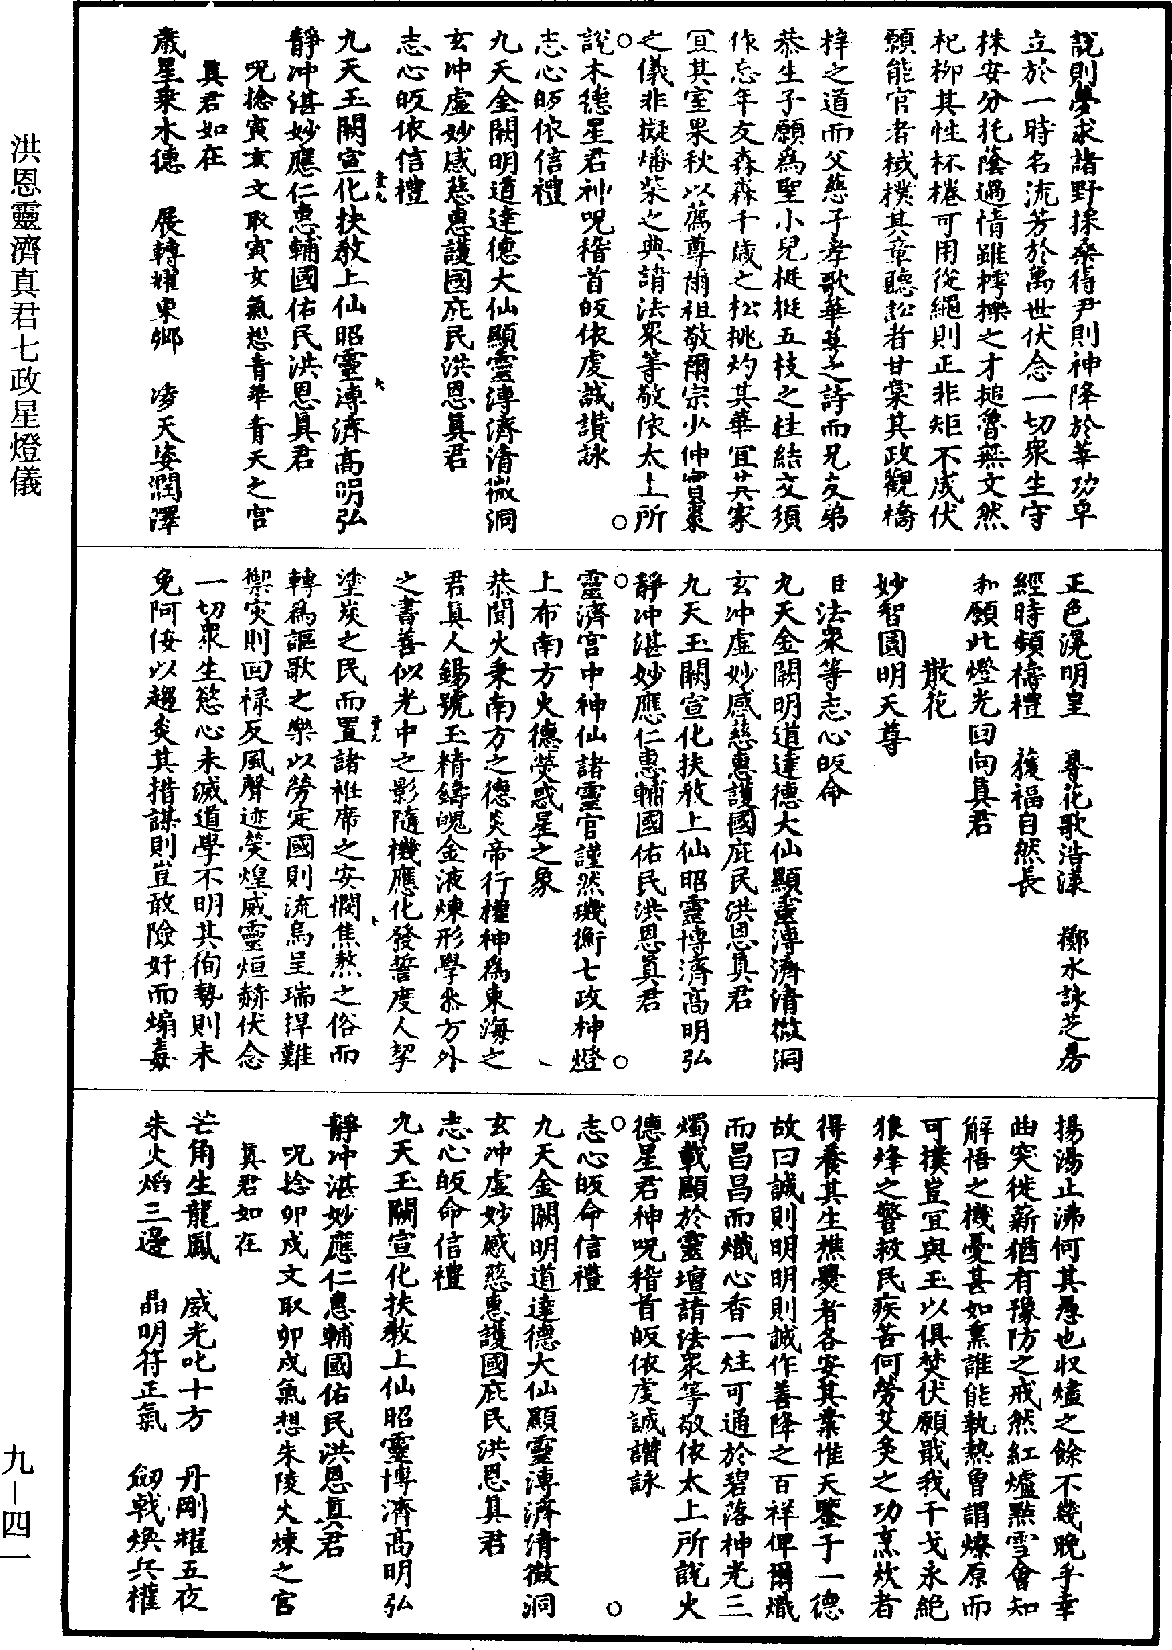 說則夢求諸野採桑得尹則神降於莘功卓
立於一時名流芳於萬世伏念一切衆生守
株安分托蔭過情雖樗櫟之才搥魯無文然
杞柳其性杯棬可用從繩則正非矩不成伏
願能官者棫樸其章聽訟者甘棠其政觀橋
梓之道而父慈子孝歌華萼之詩而兄友弟
恭生子願爲聖小兒挺挺五枝之桂結交須
作忘年友森森千歲之松桃灼其華宜其家
宜其室果秋以薦尊爾祖敬爾宗少伸實棗
之儀非擬燔柴之典請法衆等敬依太上所
說木德星君神呪稽首皈依虔誠讃詠
志心皈依信禮
九天金闕明道達德大仙顯靈溥濟清微洞
玄冲虛妙感慈惠護國庇民洪恩真君
志心皈依信禮
九天玉闕宣化扶教上仙昭靈溥濟高明弘
靜冲湛妙應仁惠輔國佑民洪恩真君
呪捻寅亥文取寅亥氣想青華青天之宮
真君如在
歲星乘木德　展轉耀東鄉　凌天姿潤澤
正色滉明皇　尋花歌浩漾　擲水詠芝房
經時頻禱禮　獲福自然長
和願此燈光回向真君
散花
妙智圓明天尊
日法衆等志心皈命
九天金闕明道達德大仙顯靈溥濟清微洞
玄冲虛妙感慈惠護國庇民洪恩真君
九天玉闕宣化扶教上仙昭靈博濟高明弘
靜冲湛妙應仁惠輔國佑民洪恩真君
靈濟宮中神仙諸靈官謹然璣衡七政神燈
上布南方火德熒惑星之象
恭聞火秉南方之德炎帝行權神爲東海之
君真人錫號玉精鑄魄金液煉形學忝方外
之書善似光中之影隨機應化發誓度人挈
塗炭之民而置諸袵席之安憫焦熬之俗而
轉爲謳歌之樂以勞定國則流烏呈瑞捍難
禦灾則回祿反風聲迹熒煌威靈烜赫伏念
一切衆生慾心未滅道學不明其徇勢則未
免阿佞以趨炎其措謀則豈敢險奸而煽毒
揚湯止沸何其愚也収爐之餘不幾晚乎幸
曲突徙薪猶有豫防之戒然紅爐點雪會知
解悟之機憂甚如熏誰能執熱曾謂燎原而
可撲豈宜與玉以俱焚伏願戢我干戈永絕
狼烽之警救民疾苦何勞艾灸之功烹炊者
得養其生樵爨者各安其業惟天鑒于一德
故曰誠則明明則誠作善降之百祥俾爾熾
而昌昌而熾心香一炷可通於碧落神光三
燭載顯於靈壇請法衆等敬依太上所說火
德星君神呪稽首皈依虔誠讃詠
志心皈命信禮
九天金闕明道達德大仙顯靈溥濟清微洞
玄冲虛妙感慈惠護國庇民洪恩真君
志心皈命信禮
九天玉闕宣化扶教上仙昭靈博濟高明弘
靜冲湛妙應仁惠輔國佑民洪恩真君
呪捻卯戍文取卯戍氣想朱陵火煉之宮
真君如在
芒角生龍鳳　威光叱十方　丹剛耀五夜
朱火焰三邊　晶明符正氣　劒戟煥兵權
洪恩靈濟真君七政星燈儀
九－四一